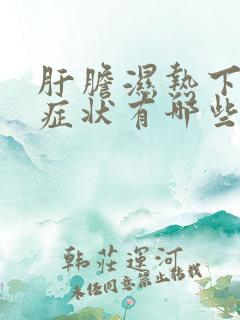 肝膽濕熱下
症状有哪些
韩莊運河
未经同意禁止转载